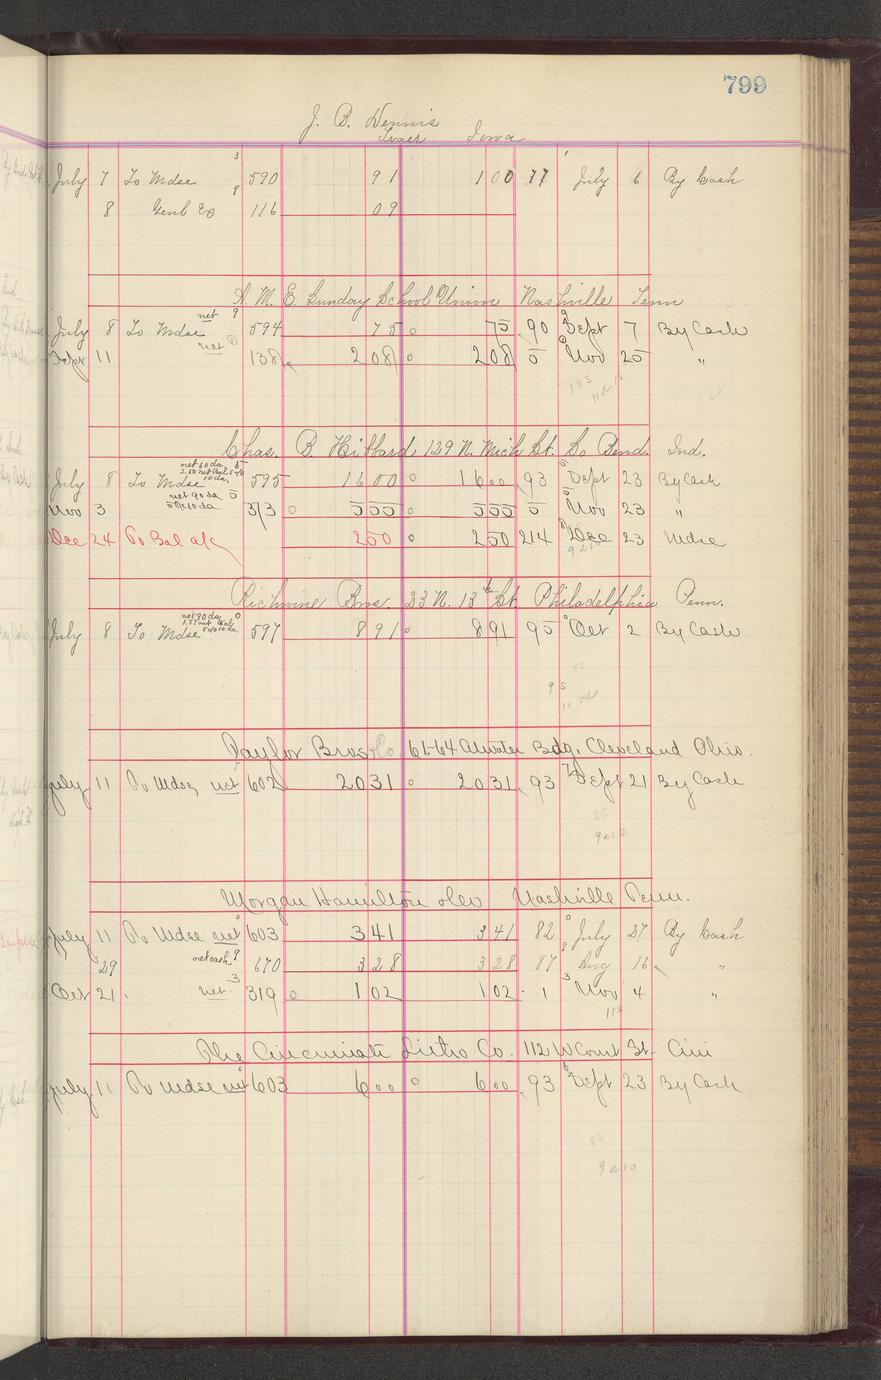 799
J. B. Dennis
Traer Iowa
July 7 To Mdse 3 590 91 100 77 July 6 By Cash
8 Genl Eo 9 116 09
A. M. E. Sunday School Union Nashville Tenn
July 8 To Mdse net 9 594 75 75 90 Sept 7 By Cash
Sept 11 net 0 138 208 208 5 Nov 25 "
Chas. B. Hibbard 129 N. Mich St. So Bend. Ind.
net 60 da
July 8 To Mdse 10 da. 595 1600 1600 93 Sept 23 By Cash
net 90 da
Nov 3 5% 10 da 373 555 555 5 Nov 23 "
Dec 24 To Bal a/c 250 250 214 Dec 23 Mdse
9 a 10
Richmine Bros. 23 N. 13th St. Philadelphia Penn.
net 90 da
July 8 To Mdse 5% 10 da. 597 891 891 95 Oct 2 By Cash
95
Taylor Bros & Co 61-64 Atwater Bdg, Cleveland Ohio.
July 11 To Mdse net 602 2031 2031 93 Sept 21 By Cash
85
9 a 10
Morgan Hamilton & Co Nashville Tenn.
July 11 To Mdse net 603 341 341 82 July 27 By Cash
29 net cash 9 670 328 328 87 Aug 16 "
Oct 21 net 3 319 102 102 1 Nov 4 "
115
The Cincinnati Litho Co. 112 W Court St- Cini
July 11 To Mdse net 603 600 600 93 Sept 23 By Cash
85
9 a 10